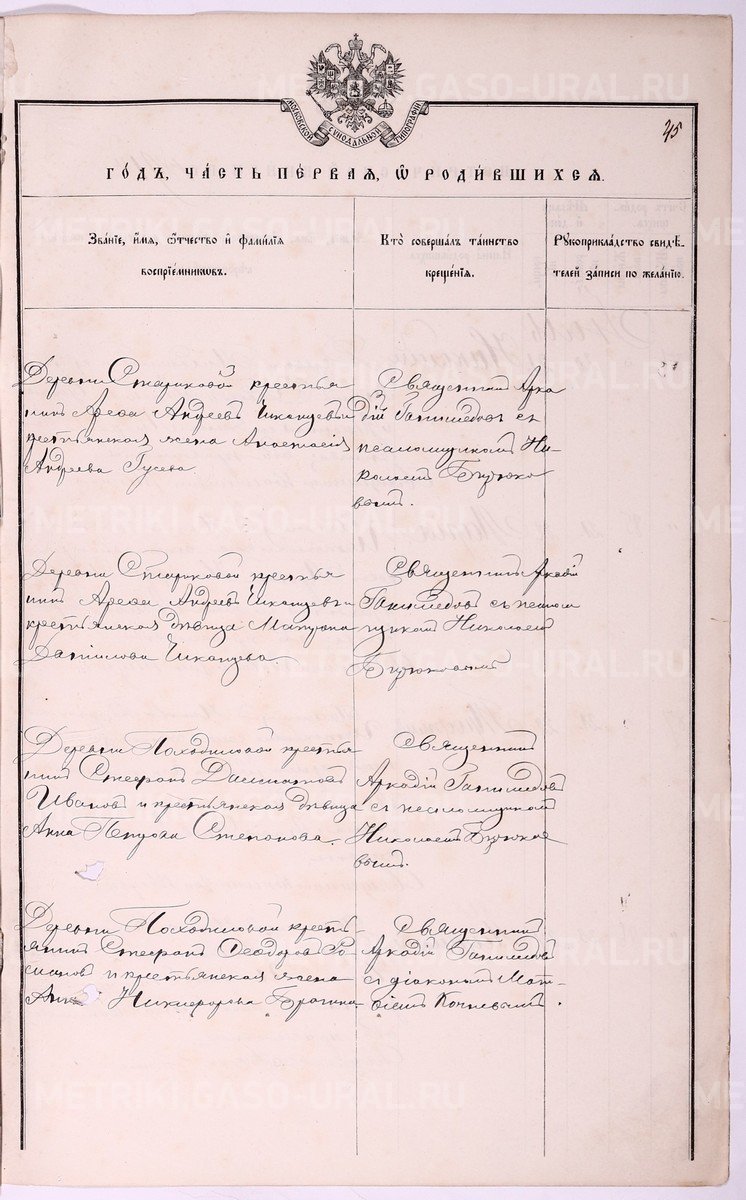 МОСКОВСКОЙ СѴНОДАЛЬНОЙ ТИПОГРАФІИ
45
ГО́ДЪ, ЧА́СТЬ ПЕ́РВАЯ, Ѿ РОДИ́ВШИХСЯ.
Зва́ніе, и́мя, ѻ҆́тчество и҆ фами́лія
воспріе́мниковъ.
Кто̀ соверша́лъ та́инство
креще́нія.
Рꙋкоприкла́дство свидѣ́-
телей за́писи по жела́нію.
Деревни Стариковой крестья
нинъ Арефа Андреевъ и
крестьянская жена Анастасія
Андреева Гусева
Священникъ Арка
дій Ганимедовъ съ
псаломщикомъ Ни-
колаемъ Бирюко
вымъ.
Деревни Стариковой крестья
нинъ Арефа Андреевъ и
крестьянская дѣвица
Данилова
Священникъ Аркадій
Ганимедовъ съ псалом
щикомъ Николаемъ
Бирюковымъ
Деревни Походиловой крестья
нинъ Стефанъ Далматовъ
Ивановъ и крестьянская дѣвица
Анна Петрова Степанова.
Священникъ
Аркадій Ганимедовъ
съ псаломщикомъ
Николаемъ Бирюко
вымъ.
Деревни Походиловой кресть
янинъ Стефанъ Ѳеодоровъ Ро
мановъ и крестьянская жена
Анна Никифорова Брагина.
Священникъ
Аркадій Ганимедовъ
съ діакономъ Мат-
ѳіемъ Кочневымъ.
METRIKI.GASO-URAL.RU